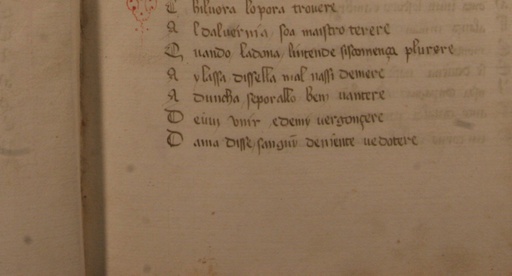 E biluora lopora trouere
A ldaluernia soa maistro terere
Q uando ladona lintende siscomença plurere
A y lassa dissella mal nassi demere
A duncha seporallo ben uantere
D eiuu vnir edemi uergonçere
D ama disse sanguin deniente uedotere